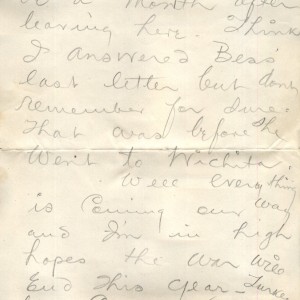 or a month after
leaving here. Think
I answered Bess'
last letter but dont
remember for sure.
That was before she
Went to Wichita.
Well everything
is Coming our way
and I'm in high
hopes the war will
End this year - Turkey